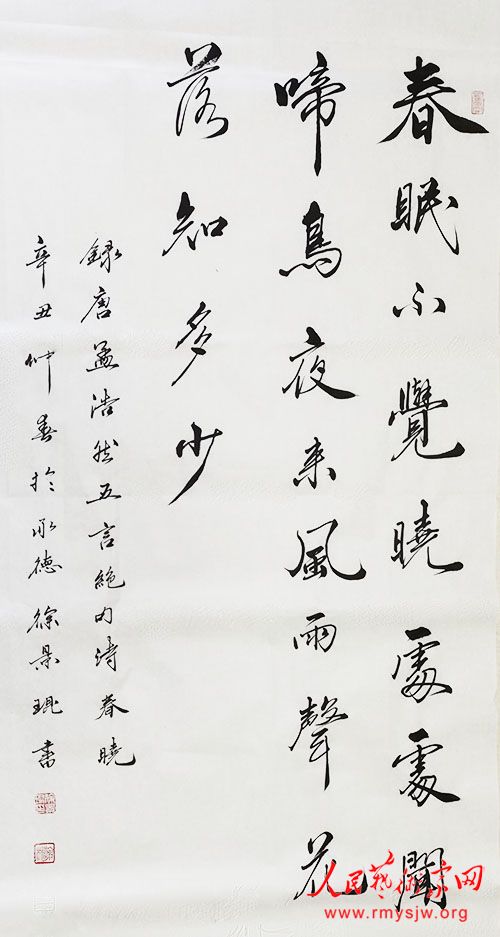 春眠不覺曉處處聞
啼鳥夜来風雨聲花
落知多少
録唐孟浩然五言絕句詩春曉
辛丑仲春於承德徐景琨書
人民艺术家网
www.rmysjw.org